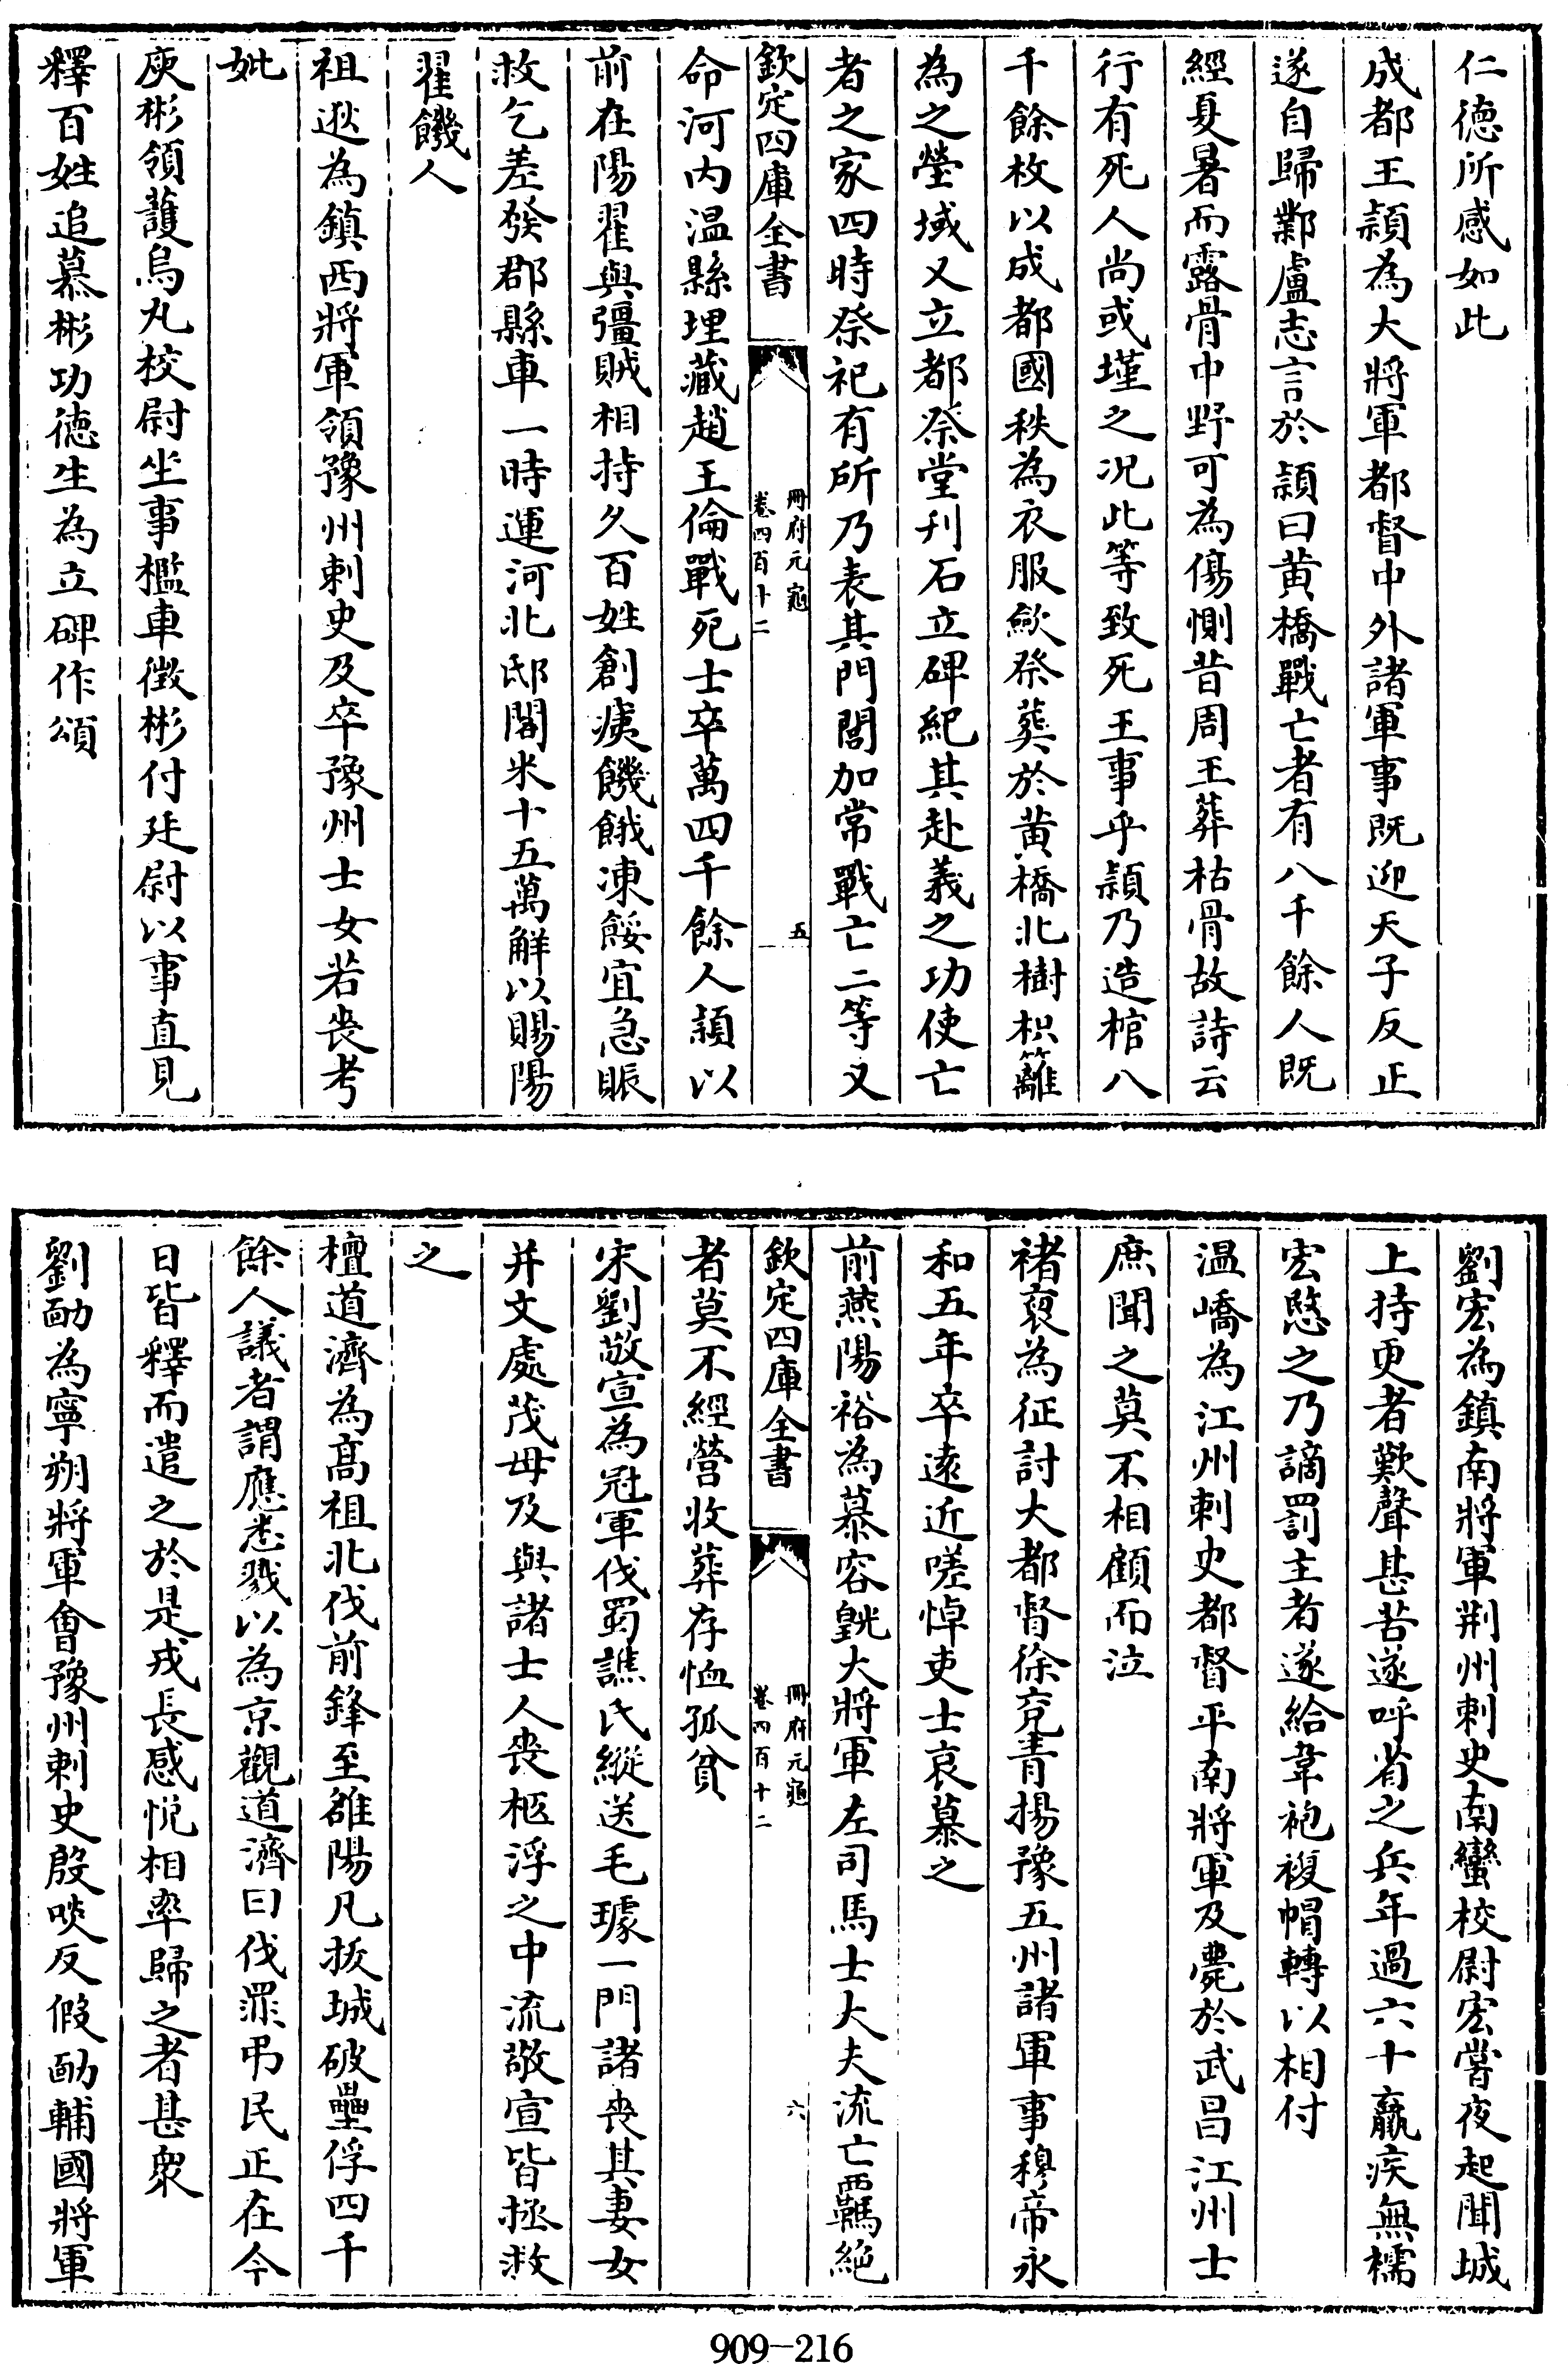 仁德所感如此
成都王頴為大將軍都督中外諸軍事既迎天子反正
遂自歸鄴盧志言於頴曰黄橋戰亡者有八千餘人既
經夏暑而露骨中野可為傷惻昔周王葬枯骨故詩云
行有死人尚或墐之况此等致死王事乎頴乃造棺八
千餘枚以成都國秩為衣服歛祭葬於黄橋北樹枳籬
為之塋域又立都祭堂刋石立碑紀其赴義之功使亡
者之家四時祭祀有所乃表其門閭加常戰亡二等又
欽定四庫全書
冊府元龜
卷四百十二
五
命河内温縣埋藏趙王倫戰死士卒萬四千餘人頴以
前在陽翟與彊賊相持久百姓創痍饑餓凍餒宜急賑
救乞差發郡縣車一時運河北邸閣米十五萬斛以賜陽
翟饑人
祖逖為鎮西將軍領豫州刺史及卒豫州士女若喪考
妣
庾彬領護烏丸校尉坐事檻車徵彬付廷尉以事直見
釋百姓追慕彬功德生為立碑作頌
劉宏為鎮南將軍荆州刺史南蠻校尉宏嘗夜起聞城
上持更者歎聲甚苦遂呼省之兵年過六十羸疾無襦
宏愍之乃謫罰主者遂給韋袍複帽轉以相付
温嶠為江州刺史都督平南將軍及薨於武昌江州士
庶聞之莫不相顧而泣
褚裒為征討大都督徐兖青揚豫五州諸軍事穆帝永
和五年卒遠近嗟悼吏士哀慕之
前燕陽裕為慕容皝大將軍左司馬士大夫流亡羈絶
欽定四庫全書
冊府元龜
卷四百十二
六
者莫不經營收葬存恤孤貧
宋劉敬宣為冠軍伐蜀譙氏縱送毛璩一門諸喪其妻女
并文處茂母及與諸士人喪柩浮之中流敬宣皆拯救
之
檀道濟為高祖北伐前鋒至雒陽凡拔城破壘俘四千
餘人議者謂應悉戮以為京觀道濟曰伐罪弔民正在今
日皆釋而遣之於是戎長感悅相率歸之者甚衆
劉勔為寧朔將軍會豫州刺史殷琰反假勔輔國將軍
909-216